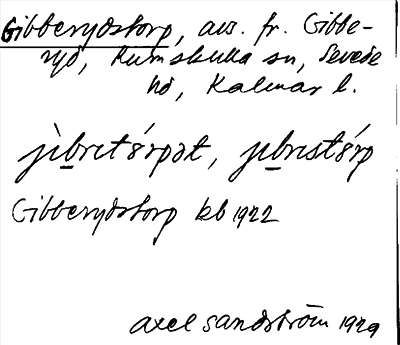 Gibberydstorp, avs. fr. Gibbe-
ryd, Rumskulla sn, Sevede
hd, Kalmar l.
jìbrɩtórpət, jìbrɩstórp
Gibberydstorp kb 1922
Axel Sandström 1929